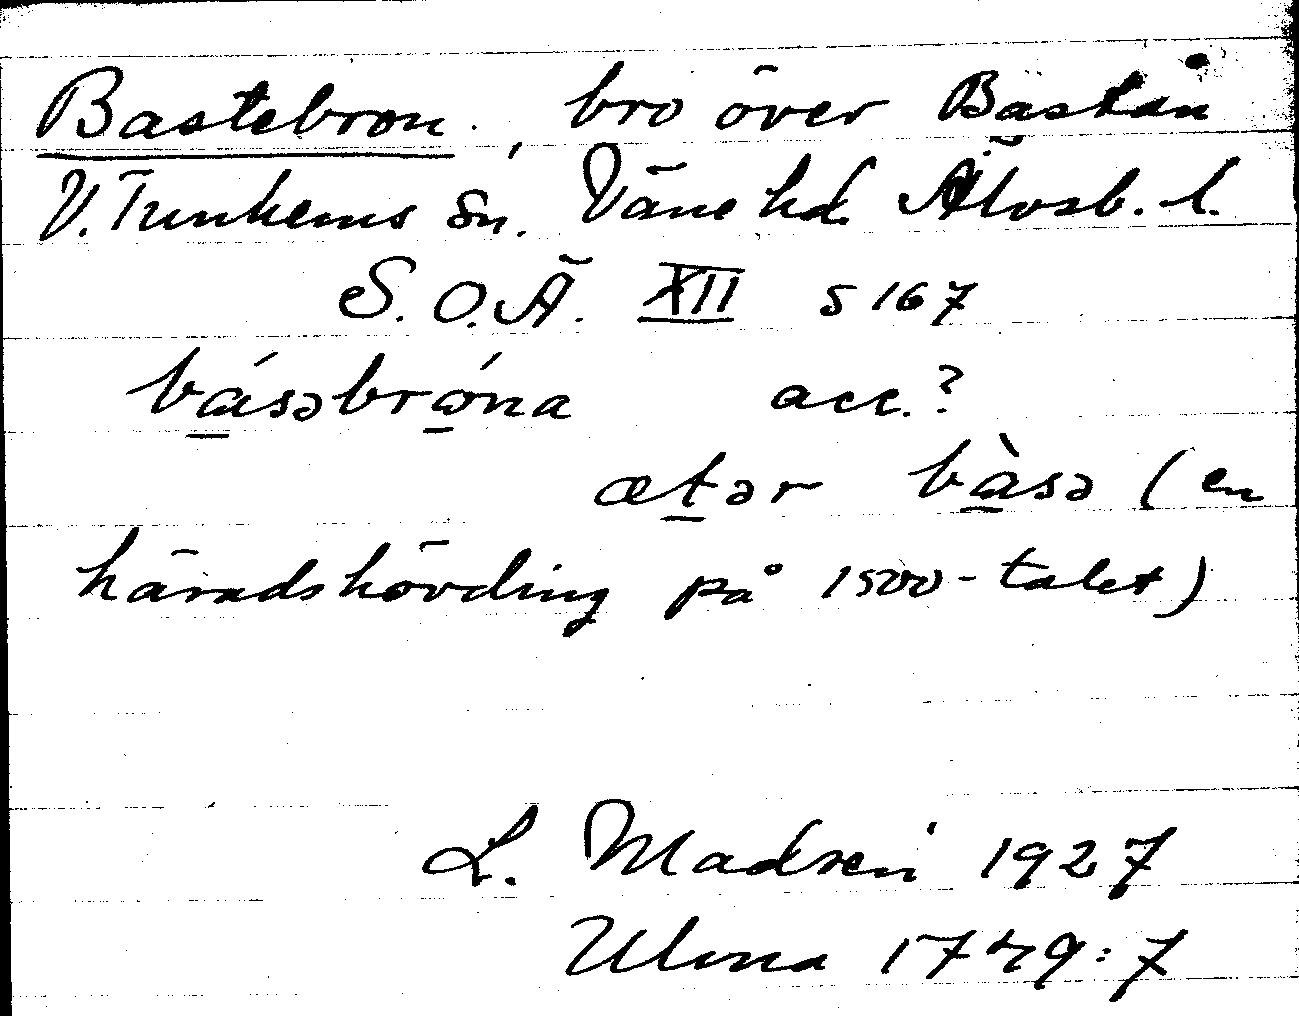 Bastebron. bro över Bastån
V. Tunhems sn. Väne hd. Älvsb. l.
S.O.Ä. XII s 167
básəbróna acc.?
ætər bàsə (en
häradshövding på 1500-talet)
L. Madsen 1927
Ulma 1749:7